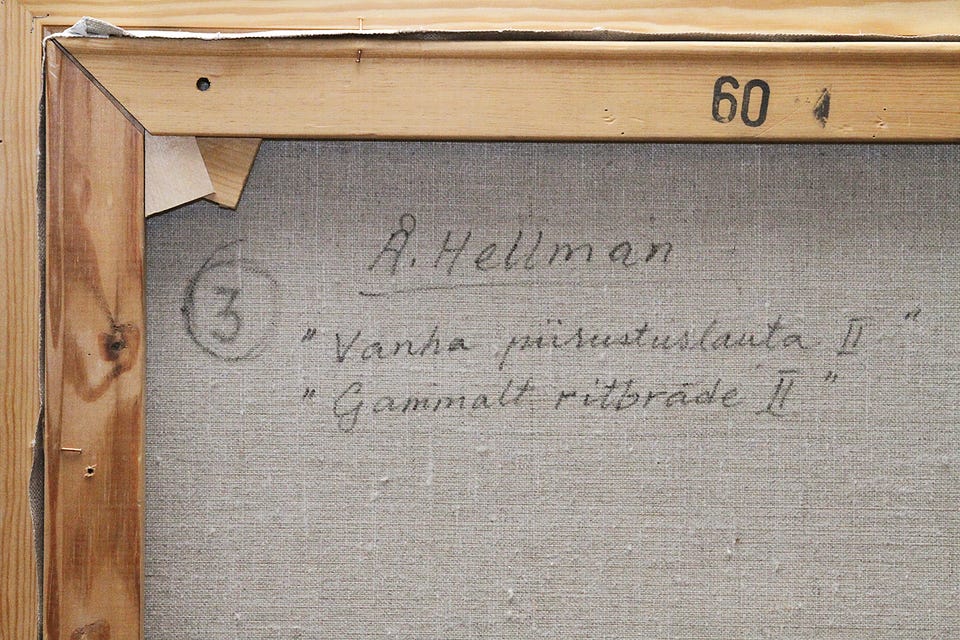 60
Å. Hellman
3
"Vanha piirustuslauta II"
"Gammalt ritbräde II"